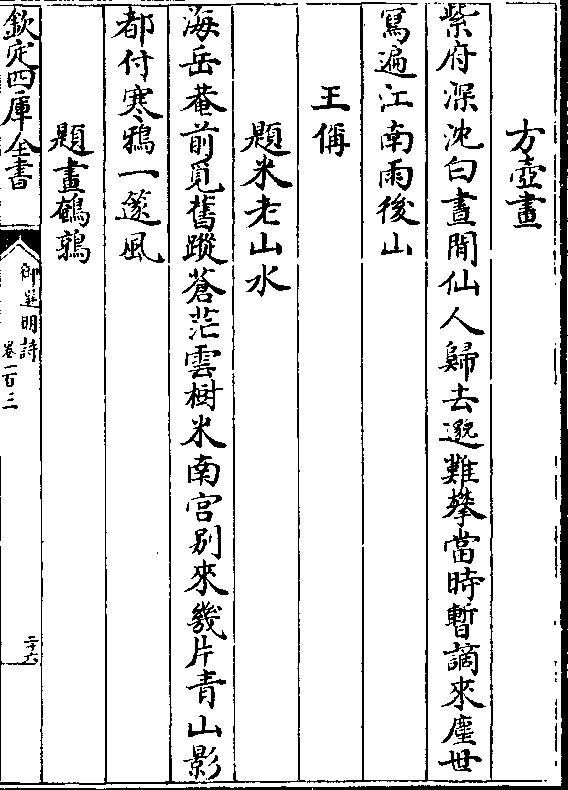 方壺畫
紫府深沈白晝閒仙人歸去邈難攀當時暫謫來塵世
寫遍江南雨後山
王偁
題米老山水
海岳菴前覓舊蹤蒼茫雲樹米南宮别來幾片青山影
都付寒鴉一篴風
題畫鵪鶉
欽定四庫全書
御選明詩
卷一百三
二十六